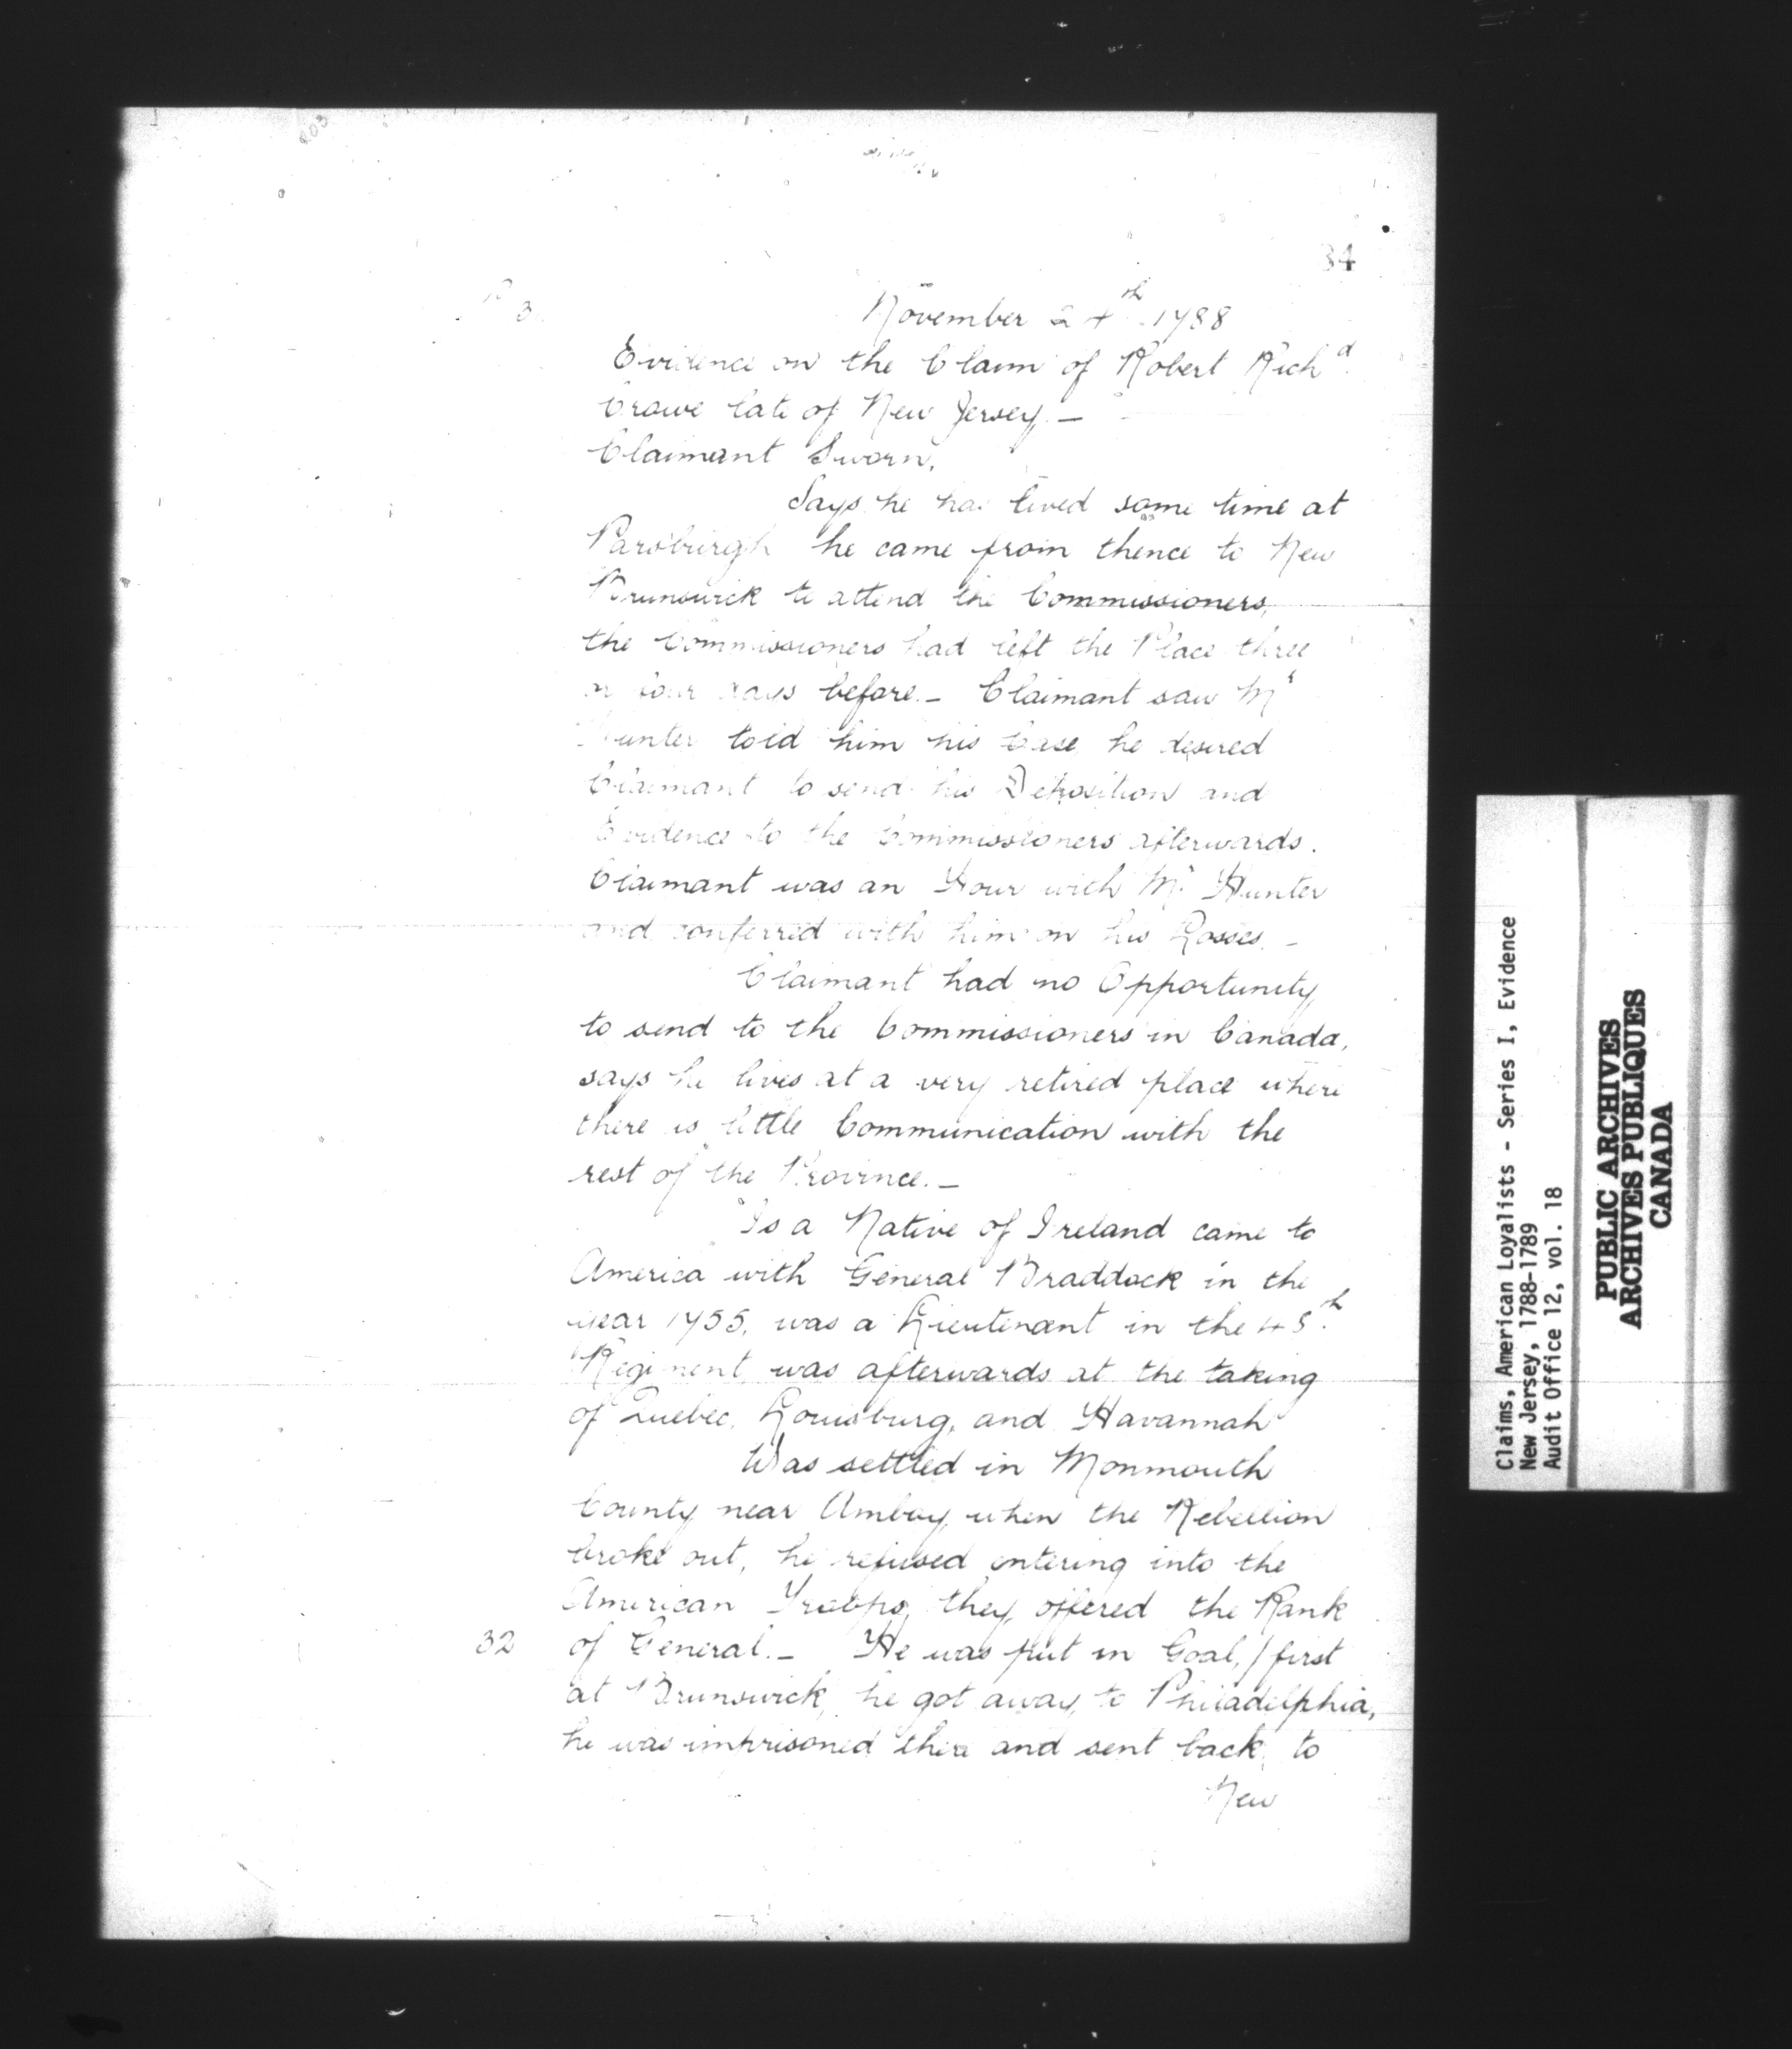 34
November 24th 1788
Evidence on the Claim of Robert Richd
Crowe late of New Jersey. —
Claimant Sworn.
Says he has lived some time at
Parsburgh he came from thence to New
Brunswick to attend the Commissioners,
the Commissioners had left the Place three
or four days before. — Claimant saw Mr
Hunter told him his Case he desired
Claimant to send his Deposition and
Evidence to the Commissioners afterwards.
Claimant was an Hour with Mr Hunter
and conferred with him on his Losses. —
Claimant had no Opportunity
to send to the Commissioners in Canada,
says he lives at a very retired place where
there is little Communication with the
rest of the Province. —
Is a Native of Ireland came to
America with General Braddock in the
year 1755, was a Lieutenant in the 45th
Regiment was afterwards at the taking
of Quebec, Louisburg, and Havannah
Was settled in Monmouth
County near Amboy when the Rebellion
broke out, he refused entering into the
American Troops, they offered the Rank
32 of General. — He was put in Goal, / first
at Brunswick, he got away to Philadelphia,
he was imprisoned there and sent back to
New
Claims, American Loyalists - Series I, Evidence
New Jersey, 1788-1789
Audit Office 12, vol. 18
PUBLIC ARCHIVES
ARCHIVES PUBLIQUES
CANADA